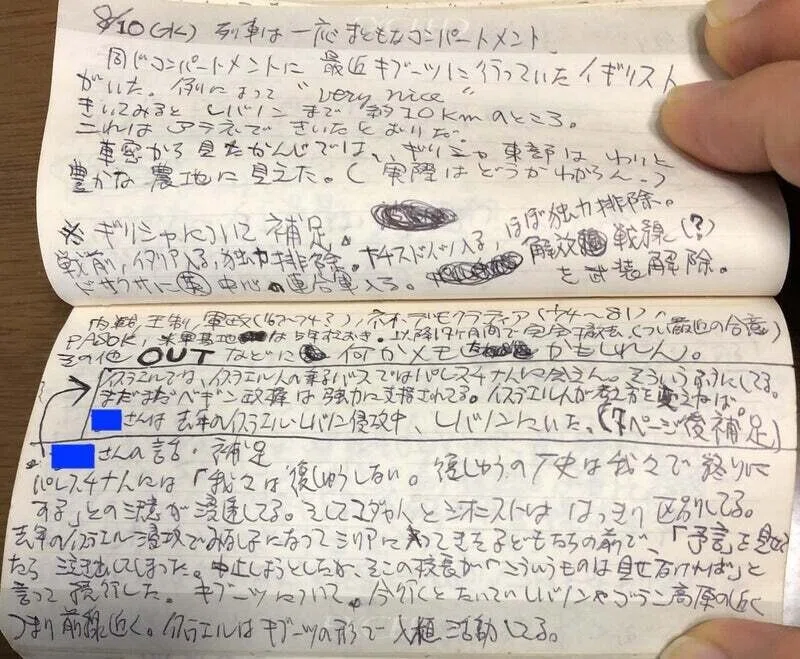 8/10(水) 列車は一応まともなコンパートメント
同じコンパートメントに最近キブーツに行っていたイギリスト
がいた。例によって "very nice"
きいてみるとレバノンまで約10kmのところ。
これはアテネできいたとおりだ。
車窓から見たかんじでは、ギリシャ東部はわりと
豊かな農地に見えた。(実際はどうかわからん。)
※ギリシャについて補足
戦前、イタリア入る、独力排除。ナチスドイツ入る、ほぼ独力排除。
どさくさに英中心の連合軍入る。解放戦線(?)
を武装解除。
内戦、王制、軍政('67〜74?)、ネオ・デモクラティア('74〜81)、
PASOK、米軍基地は5年おき。以降17ヶ月間で完全撤去(つい最近の合意)
その他 OUT などに何かメモしたかもしれん)。
イスラエルでは、イスラエル人の乗るバスではパレスチナ人に会えん。そういうふうにしてる。
まだまだベギン政権は強力に支持されてる。イスラエル人が考え方を変えねば。
さんは去年のイスラエル・レバノン侵攻中、レバノンにいた。(7ページ後補足)
さんの話・補足
パレスチナ人には「我々は復しゅうしない。復しゅうの歴史は我々で終りに
する」との意が浸透してる。そしてユダヤ人とシオニストははっきり区別してる。
去年のイスラエル侵攻でみなし子になってシリアに入ってきた子どもたちの前で、「予言」を見せ
たら泣き出してしまった。中止しようとしたが、そこの校長が「こういうものは見せなければ」と
言って続行した。キブーツについて、今行くとたいていレバノンやゴラン高原の近く
つまり前線近く。イスラエルはキブーツの形で入植活動してる。